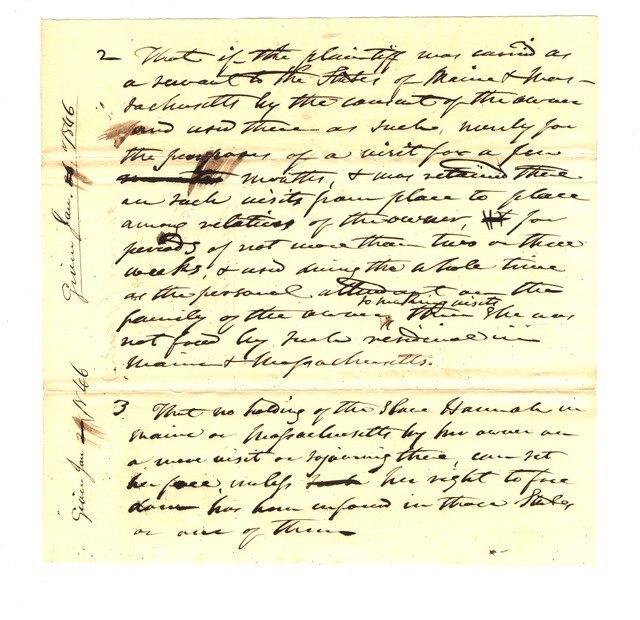 2 That if the plaintiff was carried as
a servant to the States of Maine & Mas-
sachusetts by the consent of the owner
and used there as such, merely for
the purposes of a visit for a few
months, & was retained there
on such visits from place to place
among relations of the owner, for
periods of not more than two or three
weeks, & used during the whole time
as the personal attendant on the
to making visits
family of the owner, then she was
not freed by such residence in
Maine & Massachusetts.
3 That no holding of the Slave Hannah in
Maine or Massachusetts by her owner on
a mere visit or sojourning there, can set
her free, unless her right to free
dom has been enforced in those States
or one of them
Given Jan. 1846
Given Jan 1846